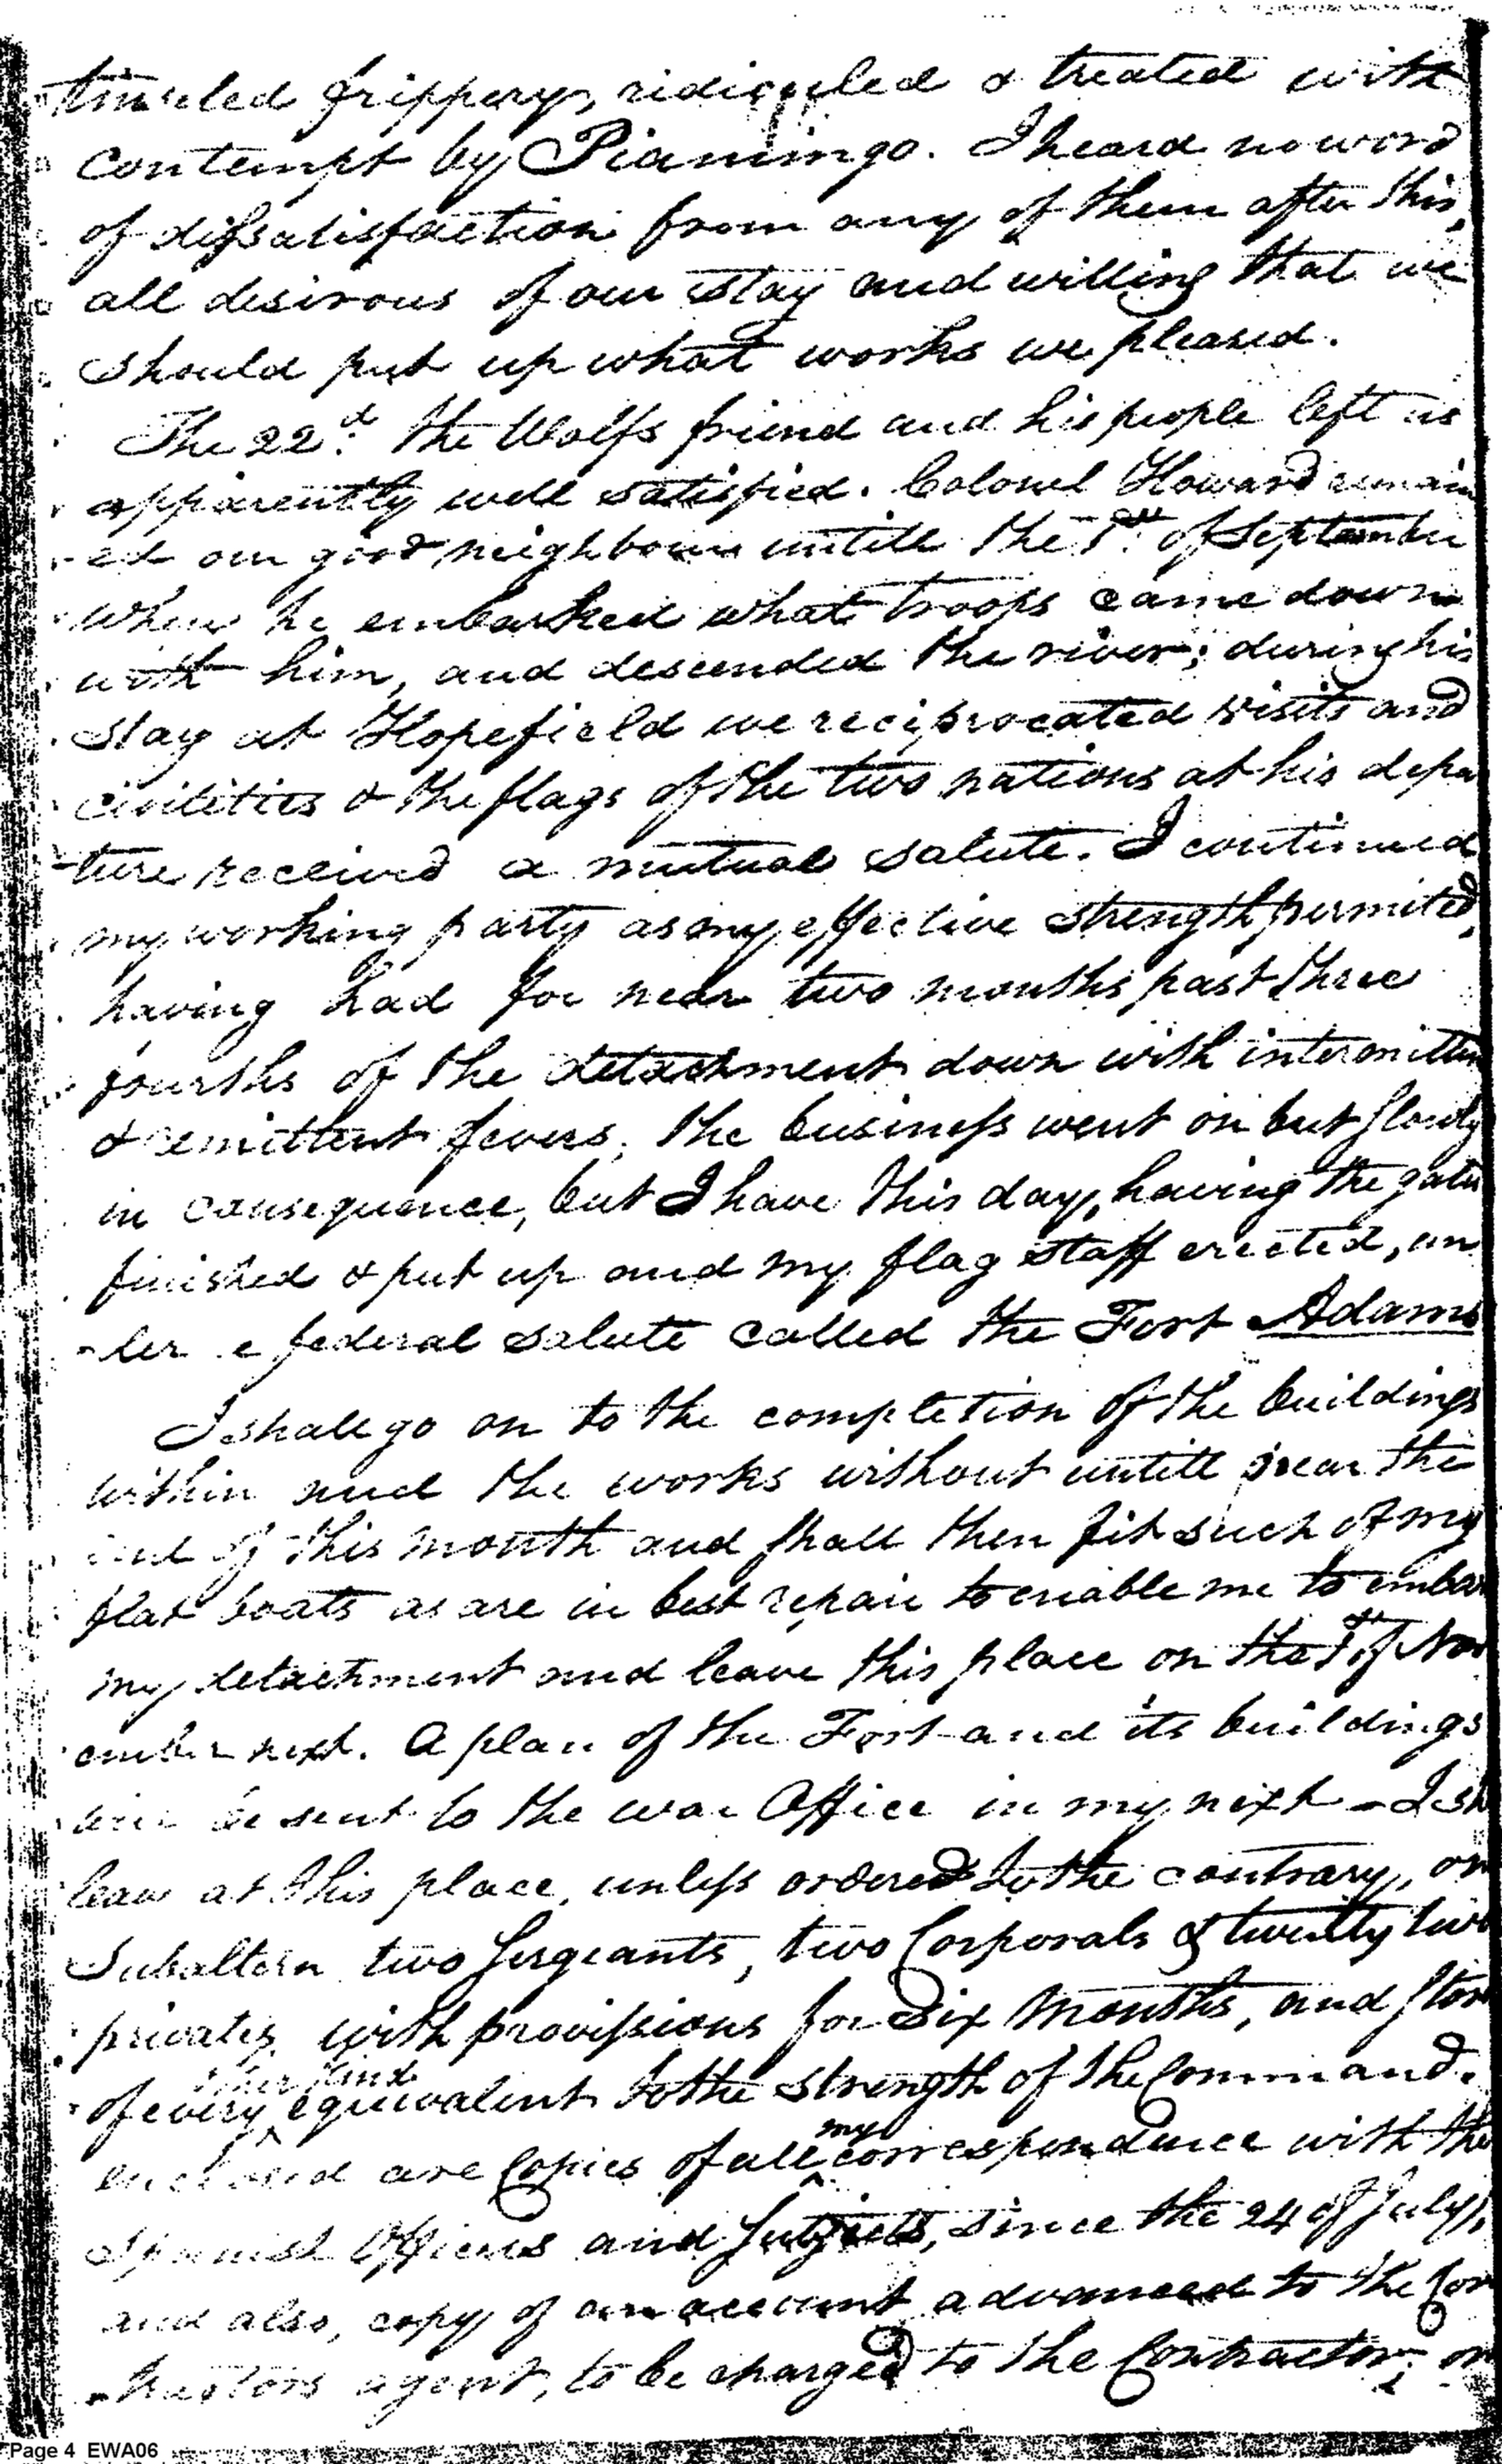 tinseled frippery, ridiculed & treated with
contempt by Piamingo. I heard no word
of dissatisfaction from any of them after this,
all desirous of our stay and willing that we
should put up what works we pleased.
The 22d. the Wolfs friend and his people left us
apparently well satisfied. Colonel Howard remain
-ed our good neighbour untill the 1st. of September
when he embarked what troops came down
with him, and descended the river; during his
stay at Hopefield we reciprocated visits and
civilities & the flags of the two nations at his depar
-ture received a mutual salute. I continued
my working party as my effective strength permited,
having had for near two months past three
fourths of the detachment down with intermitten
& remittent fevers, the business went on but slowly
in consequence, but I have this day, having the gates
finished & put up and my flag staff erected, un
-der a federal salute called the Fort Adams
I shall go on to the completion of the buildings
within and the works without untill near the
end of this month and shall then fit such of my
flat boats as are in best repair to enable me to embar
my detachment and leave this place on the 1st of Nov
ember next. A plan of the Fort and its buildings
will be sent to the war Office in my next - I sh
leave at this place, unless ordered to the contrary, on
Subaltern two Sergeants, two Corporals & twenty two
privates with provissions for Six Months, and stor
of every other kind equivalent to the strength of the Command.
enclosed are Copies of all my correspondence with the
Spanish Officers and Subjects, since the 24 of July,
and also, copy of an account advanced to the Con
-tractors agent, to be charged to the Contractor; on
Page 4 EWA06